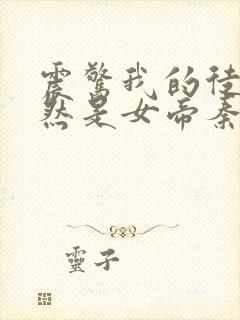 震驚我的徒
然是女帝秦
靈子